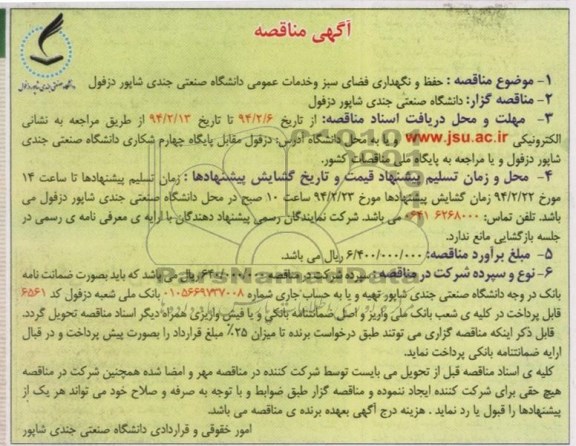 آگهی مناقصه
دانشگاه صنعتی جندی شاپور دزفول
۱- موضوع مناقصه : حفظ و نگهداری فضای سبز وخدمات عمومی دانشگاه صنعتی جندی شاپور دزفول
۲- مناقصه گزار: دانشگاه صنعتی جندی شاپور دزفول
۳- مهلت و محل دریافت اسناد مناقصه: از تاریخ ۹۴/۲/۶ تا تاریخ ۹۴/۲/۱۳ از طریق مراجعه به نشانی
الکترونیکی www.jsu.ac.ir و یا به محل دانشگاه آدرس: دزفول مقابل پایگاه چهارم شکاری دانشگاه صنعتی جندی
شاپور دزفول و یا مراجعه به پایگاه ملی مناقصات کشور.
۴- محل و زمان تسلیم پیشنهاد قیمت و تاریخ گشایش پیشنهادها : زمان تسلیم پیشنهادها تا ساعت ۱۴
مورخ ۹۴/۲/۲۲ زمان گشایش پیشنهادها مورخ ۹۴/۲/۲۳ ساعت ۱۰ صبح در محل دانشگاه صنعتی جندی شاپور دزفول می
باشد. تلفن تماس: ۶۲۶۸۰۰۰ ۰۶۴۱ می باشد. شرکت نمایندگان رسمی پیشنهاد دهندگان با ارایه ی معرفی نامه ی رسمی در
جلسه بازگشایی مانع ندارد.
۵- مبلغ برآورد مناقصه: ۶/۴۰۰/۰۰۰/۰۰۰ ریال می باشد.
۶- نوع و سپرده شرکت در مناقصه : سپرده شرکت در مناقصه ۶۴۰/۰۰۰/۰۰۰ ریال می باشد که باید بصورت ضمانت نامه
بانک در وجه دانشگاه صنعتی جندی شاپور تهیه و یا به حساب جاری شماره ۰۱۰۵۶۶۹۷۳۷۰۰۸ بانک ملی شعبه دزفول کد ۶۵۶۱
قابل پرداخت در کلیه ی شعب بانک ملی واریز و اصل ضمانتنامه بانکی و یا فیش واریزی همراه دیگر اسناد مناقصه تحویل گردد.
قابل ذکر اینکه مناقصه گزاری می توتند طبق درخواست برنده تا میزان ۲۵٪ مبلغ قرارداد را بصورت پیش پرداخت و در قبال
ارایه ضمانتنامه بانکی پرداخت نماید.
کلیه ی اسناد مناقصه قبل از تحویل می بایست توسط شرکت کننده در مناقصه مهر و امضا شده همچنین شرکت در مناقصه
هیچ حقی برای شرکت کننده ایجاد ننموده و مناقصه گزار طبق ضوابط و با توجه به صرفه و صلاح خود می تواند هر یک از
پیشنهادها را قبول یا رد نماید . هزینه درج آگهی بعهده برنده ی مناقصه می باشد.
امور حقوقی و قراردادی دانشگاه صنعتی جندی شاپور
ParsNamadData